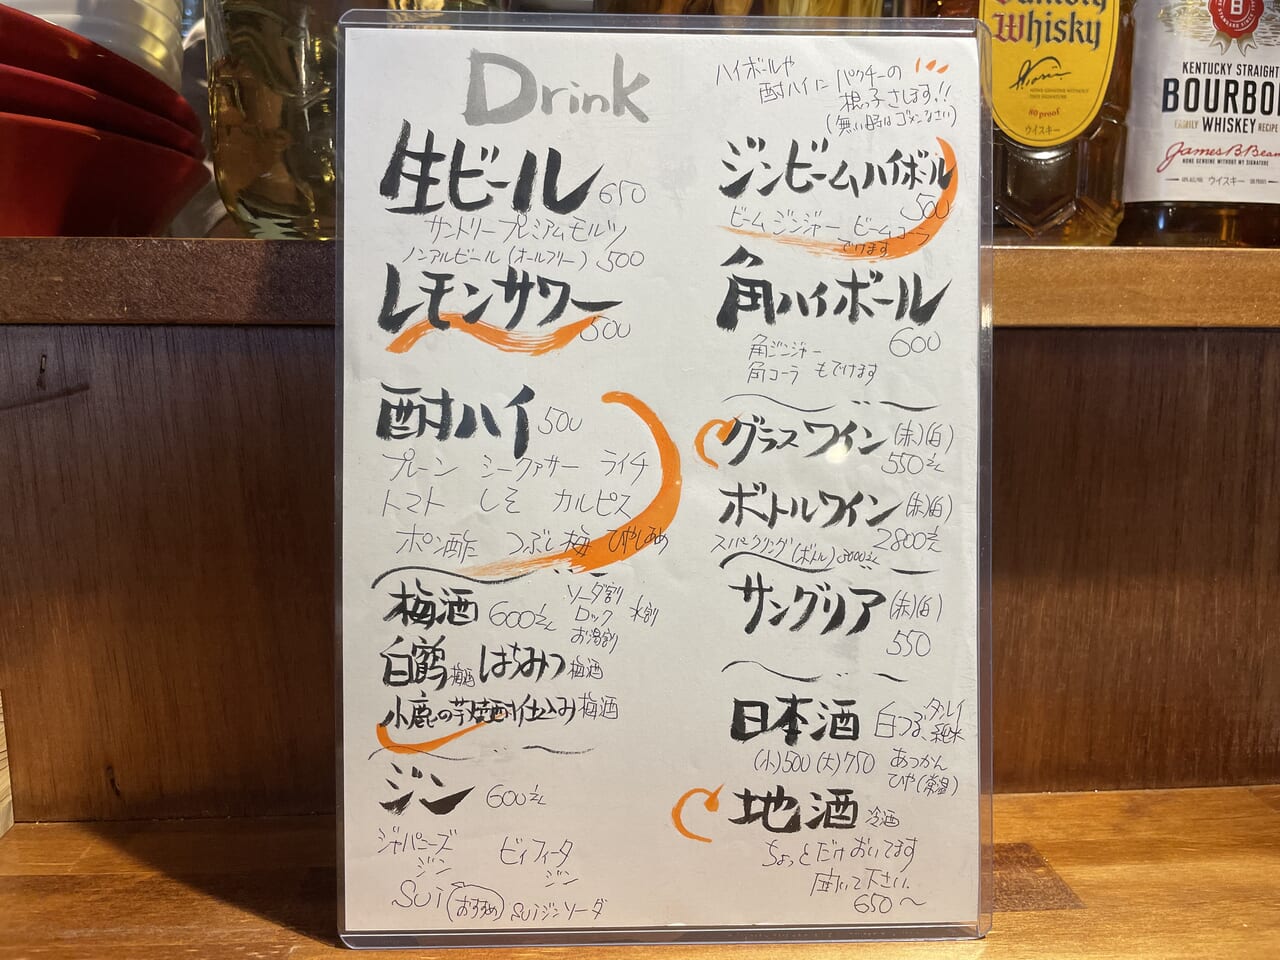 Drink
生ビール 650
サントリープレミアムモルツ
ノンアルビール(オールフリー) 500
レモンサワー
500
酎ハイ 500
プレーン シークァサー ライチ
トマト しそ カルピス
ポン酢 つぶし梅 ひやしあめ
梅酒 600
ソーダ割
ロック 水割
お湯割
白鶴梅酒 はちみつ梅酒
小鹿の芋焼酎仕込み梅酒
ジン 600
ジャパニーズ
ジン
Sui (おすすめ) suiジンソーダ
ビィフィータ
ジン
ハイボールや
酎ハイに パクチーの
根っ子さします!!
(無い時はゴメンなさい)
ジンビームハイボール
500
ビームジンジャー ビームコーラ
でけます
角ハイボール
600
角ジンジャー
角コーラ もでけます
グラスワイン (赤)(白)
550
ボトルワイン (赤)(白)
2800
スパークリング(ボトル) 3000
サングリア (赤)(白)
550
日本酒 白つる、タンレイ
純米
(小)500 (大)750 あつかん
ひや(常温)
地酒 冷酒
ちょっとだけおいてます
聞いて下さい
650〜
Whisky
80 proof
ウイスキー
B
KENTUCKY STRAIGHT
BOURBON
FAMILY WHISKEY RECIPE
James B. Beam
NONE GENUINE WITHOUT MY SIGNATURE
ウイスキー